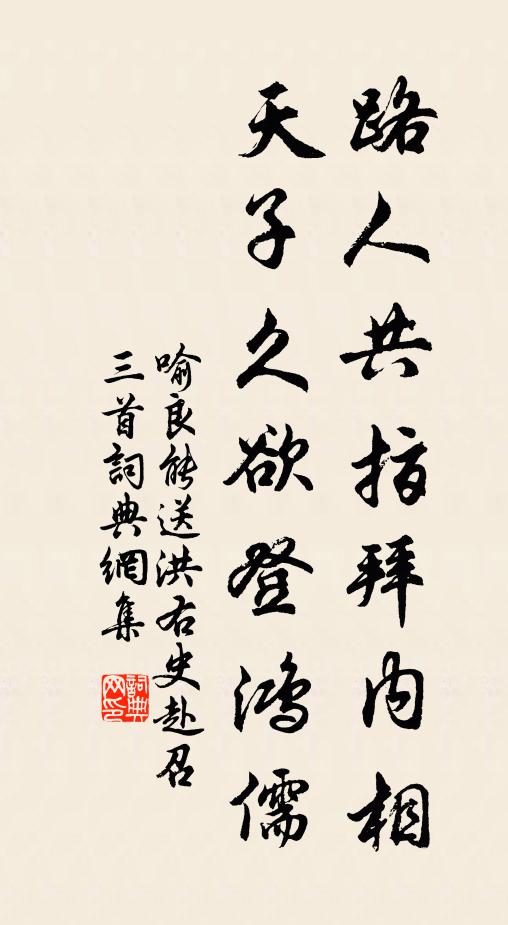 路人共指拜内相
天子久欲登鴻儒
喻良能送洪右史赴召
三首詞典網集
詞典網印